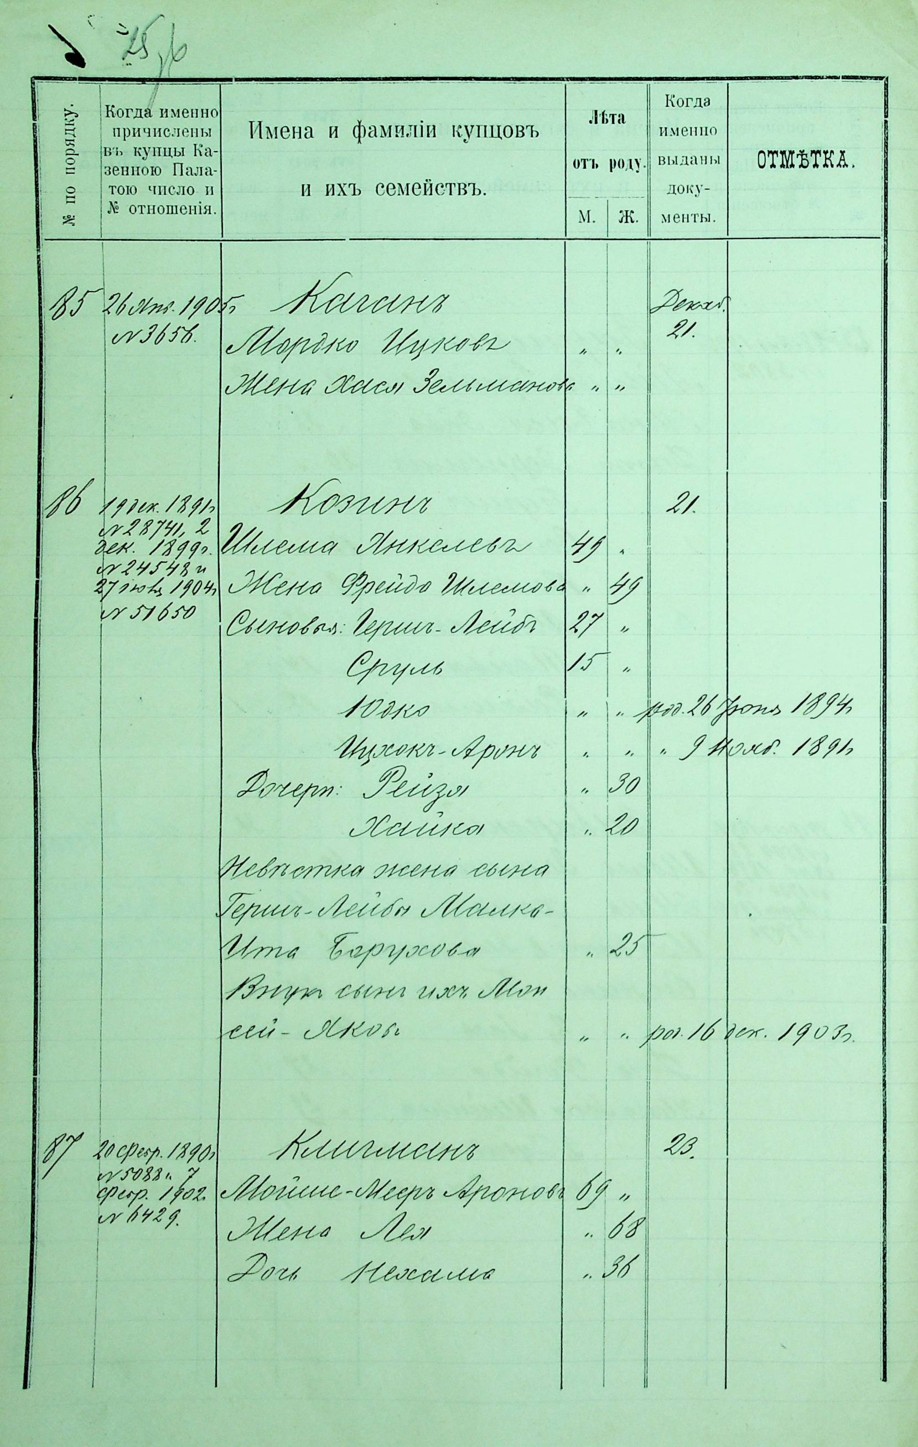 25 об
№ по порядку.
Когда именно
причислены
въ купцы Ка-
зенною Пала-
тою число и
№ отношенія.
Имена и фамиліи купцовъ
и ихъ семействъ.
Лѣта
отъ роду.
М. Ж.
Когда
именно
выданы
доку-
менты.
ОТМѢТКА.
85 26 Янв. 1905г Каганъ Декаб.
№ 3656. Мордко Ицковъ „ „ 21.
Жена Хася Зельманова „ „
86 19 дек. 1891г Козинъ 21.
№ 28741, 2
дек. 1899г. Шлема Янкелевъ 49 „
№ 24548 и
27 1904г Жена Фрейда Шлемова „ 49
№ 51650
Сыновья: Герш-Лейбъ 27 „
Сруль 15 „
Юдко „ „ род. 26 Іюня 1894г
Ицхокъ-Аронъ „ „ „ 9 Нояб. 1891г
Дочери: Рейзя „ 30
Хайка „ 20
Невѣстка жена сына
Герш-Лейбы Малка-
Ита Борухова „ 25
Внукъ сынъ ихъ Мои
сей-Яковъ „ „ род. 16 дек. 1903г.
87 20 февр. 1890г Клигманъ 23.
№ 5088 и 7
февр. 1902. Мойше-Мееръ Ароновъ 69 „
№ 6429.
Жена Лея „ 68
Дочь Нехама „ 36